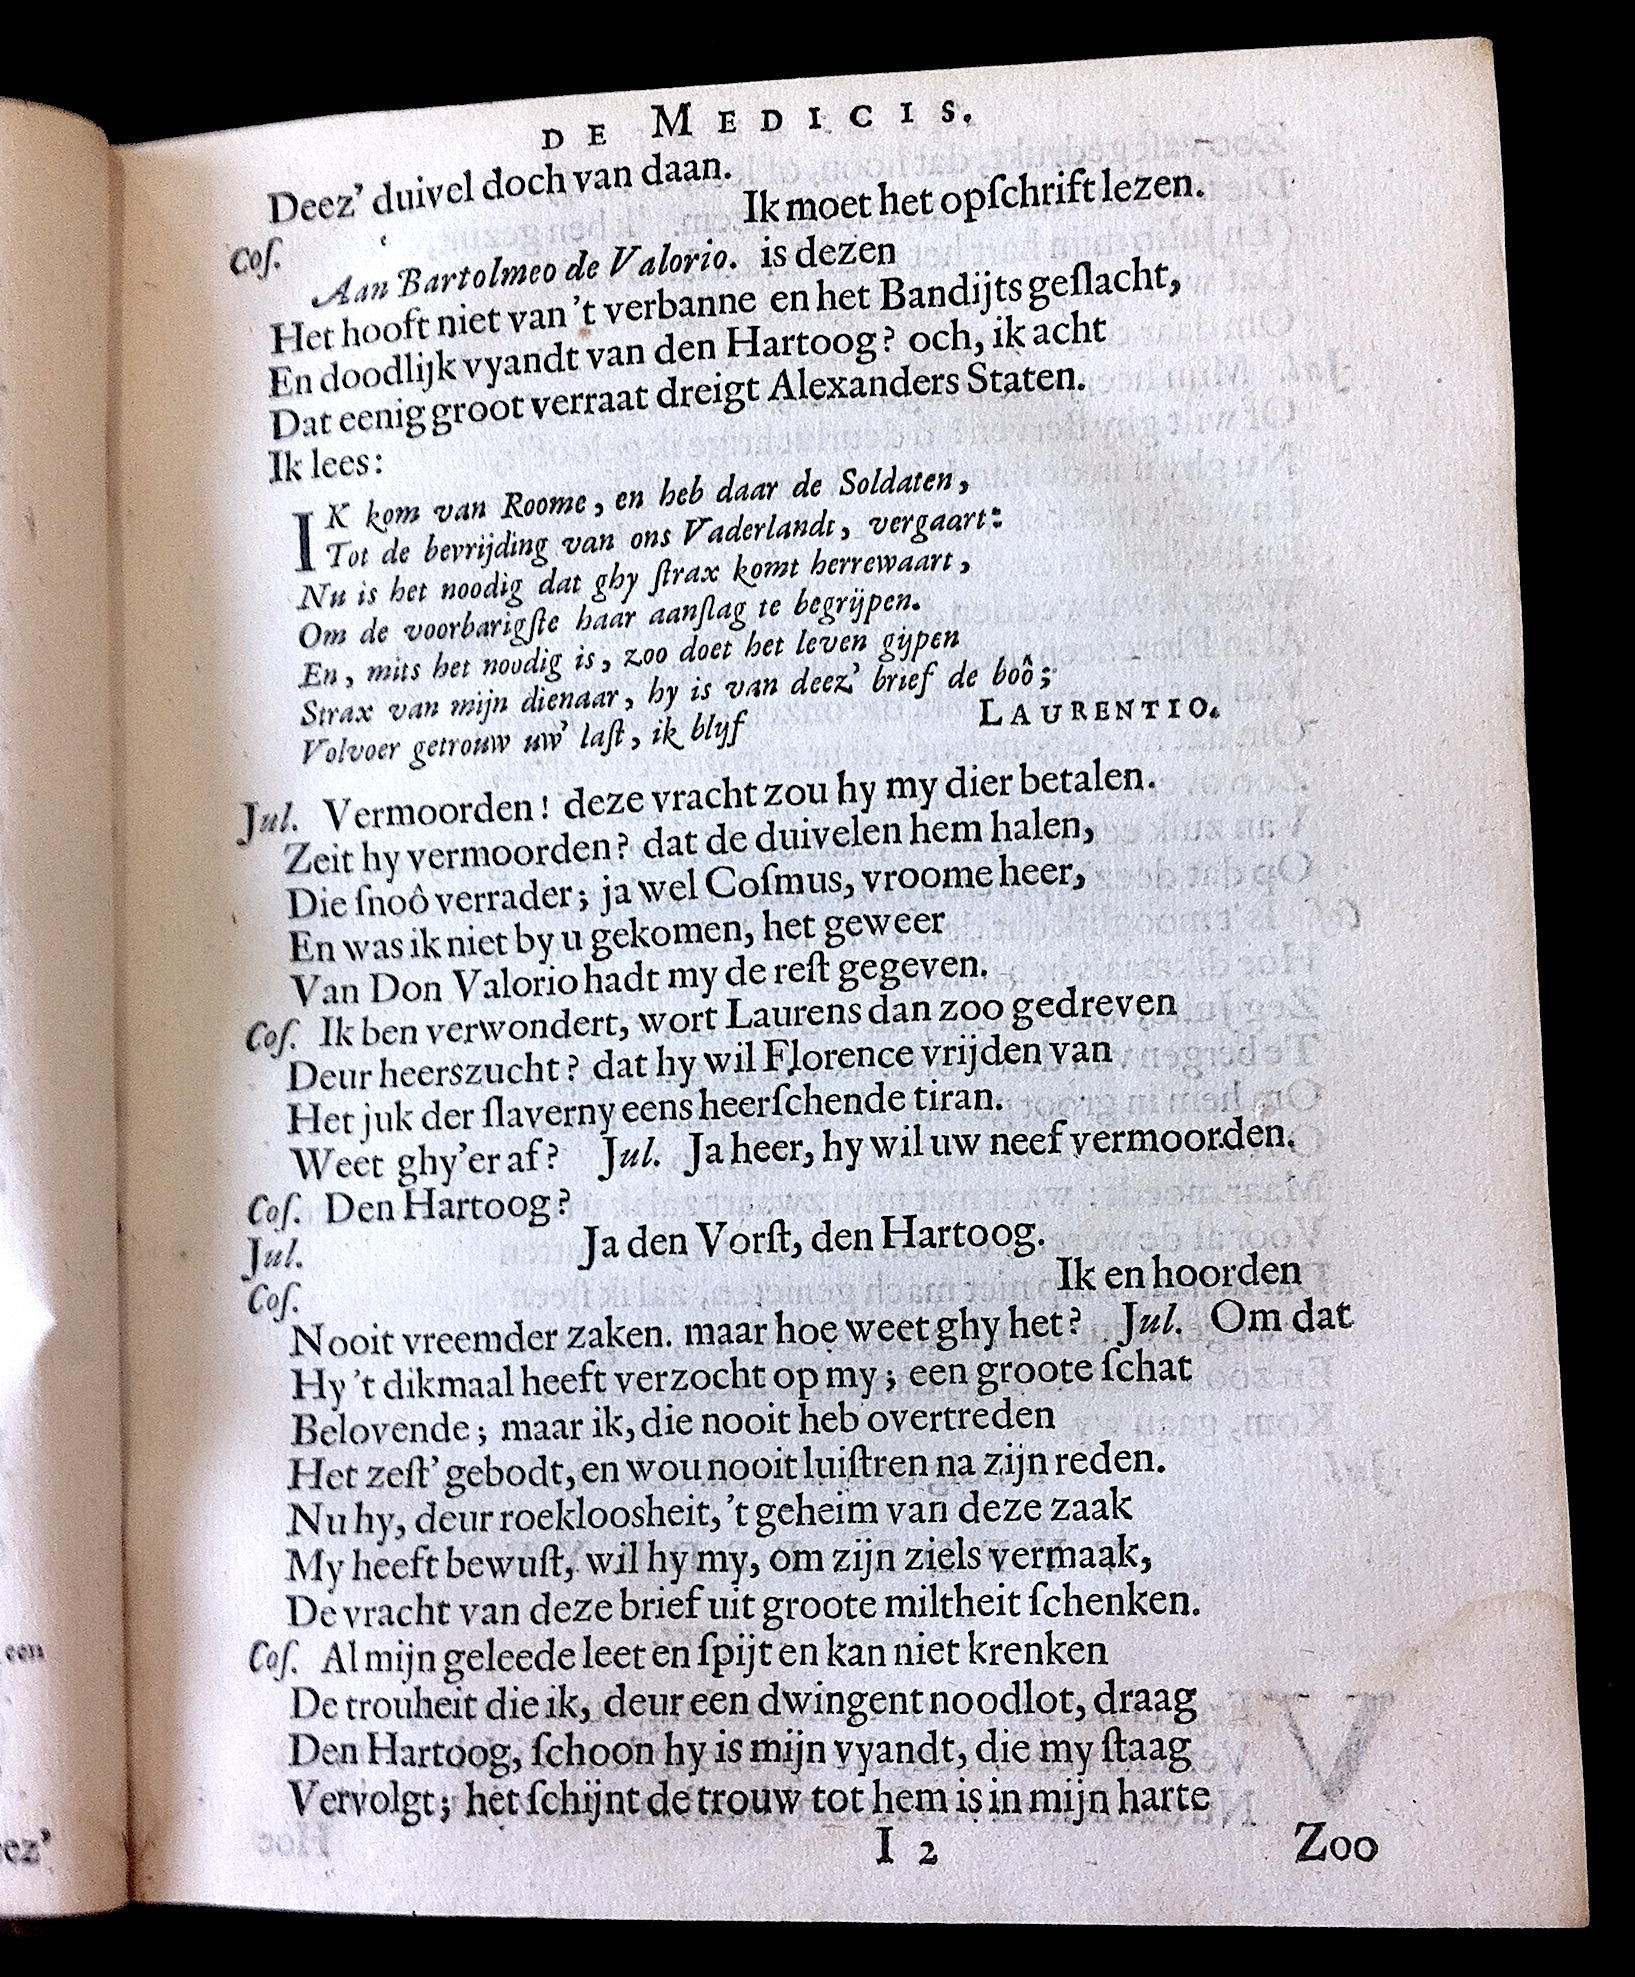 DE MEDICIS.
Deez' duivel doch van daan.
Coſ. Ik moet het opſchrift lezen.
Aan Bartolmeo de Valorio. is dezen
Het hooft niet van 't verbanne en het Bandijts geſlacht,
En doodlijk vyandt van den Hartoog? och, ik acht
Dat eenig groot verraat dreigt Alexanders Staten.
Ik lees:
IK kom van Roome, en heb daar de Soldaten,
Tot de bevrijding van ons Vaderlandt, vergaart:
Nu is het noodig dat ghy ſtrax komt herrewaart,
Om de voorbarigſte haar aanſlag te begrijpen.
En, mits het noodig is, zoo doet het leven gijpen
Strax van mijn dienaar, hy is van deez' brief de boô;
Volvoer getrouw uw' laſt, ik blijf
LAURENTIO.
Jul. Vermoorden! deze vracht zou hy my dier betalen.
Zeit hy vermoorden? dat de duivelen hem halen,
Die ſnoô verrader; ja wel Coſmus, vroome heer,
En was ik niet by u gekomen, het geweer
Van Don Valorio hadt my de reſt gegeven.
Coſ. Ik ben verwondert, wort Laurens dan zoo gedreven
Deur heerszucht? dat hy wil Florence vrijden van
Het juk der ſlaverny eens heerſchende tiran.
Weet ghy'er af? Jul. Ja heer, hy wil uw neef vermoorden.
Coſ. Den Hartoog?
Jul. Ja den Vorſt, den Hartoog.
Coſ. Ik en hoorden
Nooit vreemder zaken. maar hoe weet ghy het? Jul. Om dat
Hy 't dikmaal heeft verzocht op my; een groote ſchat
Belovende; maar ik, die nooit heb overtreden
Het zeſt' gebodt, en wou nooit luiſtren na zijn reden.
Nu hy, deur roekloosheit, 't geheim van deze zaak
My heeft bewuſt, wil hy my, om zijn ziels vermaak,
De vracht van deze brief uit groote miltheit ſchenken.
Coſ. Al mijn geleede leet en ſpijt en kan niet krenken
De trouheit die ik, deur een dwingent noodlot, draag
Den Hartoog, ſchoon hy is mijn vyandt, die my ſtaag
Vervolgt; het ſchijnt de trouw tot hem is in mijn harte
I 2
Zoo
een
ez'